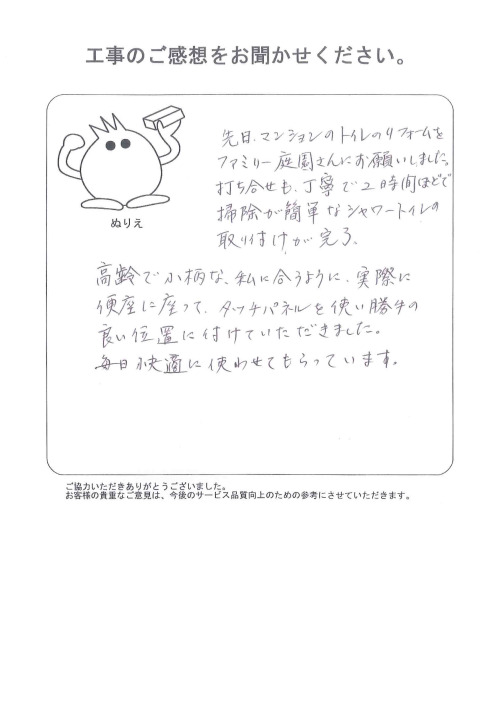 工事のご感想をお聞かせください。
先日、マンションのトイレのリフォームを
ファミリー庭園さんにお願いしました。
打ち合せも、丁寧で2時間ほどで
掃除が簡単なシャワートイレの
取り付けが完了、
ぬりえ
高齢で小柄な、私に合うように、実際に
便座に座って、タッチパネルを使い勝手の
良い位置に付けていただきました。
毎日快適に使わせてもらっています。
ご協力いただきありがとうございました。
お客様の貴重なご意見は、今後のサービス品質向上のための参考にさせていただきます。